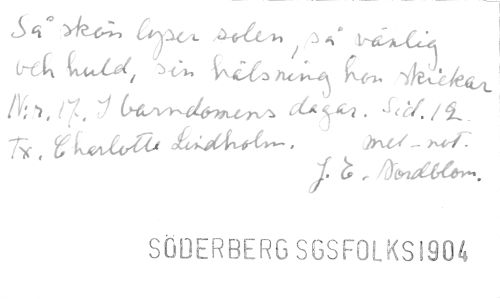 Så skön lyser solen, så vänlig
och huld, sin hälsning hon skickar
N:r. 17. I barndomens dagar. Sid. 19.
Tx. Charlotte Lindholm. mel-not.
J. E. Nordblom.
SÖDERBERG SGSFOLKS1904